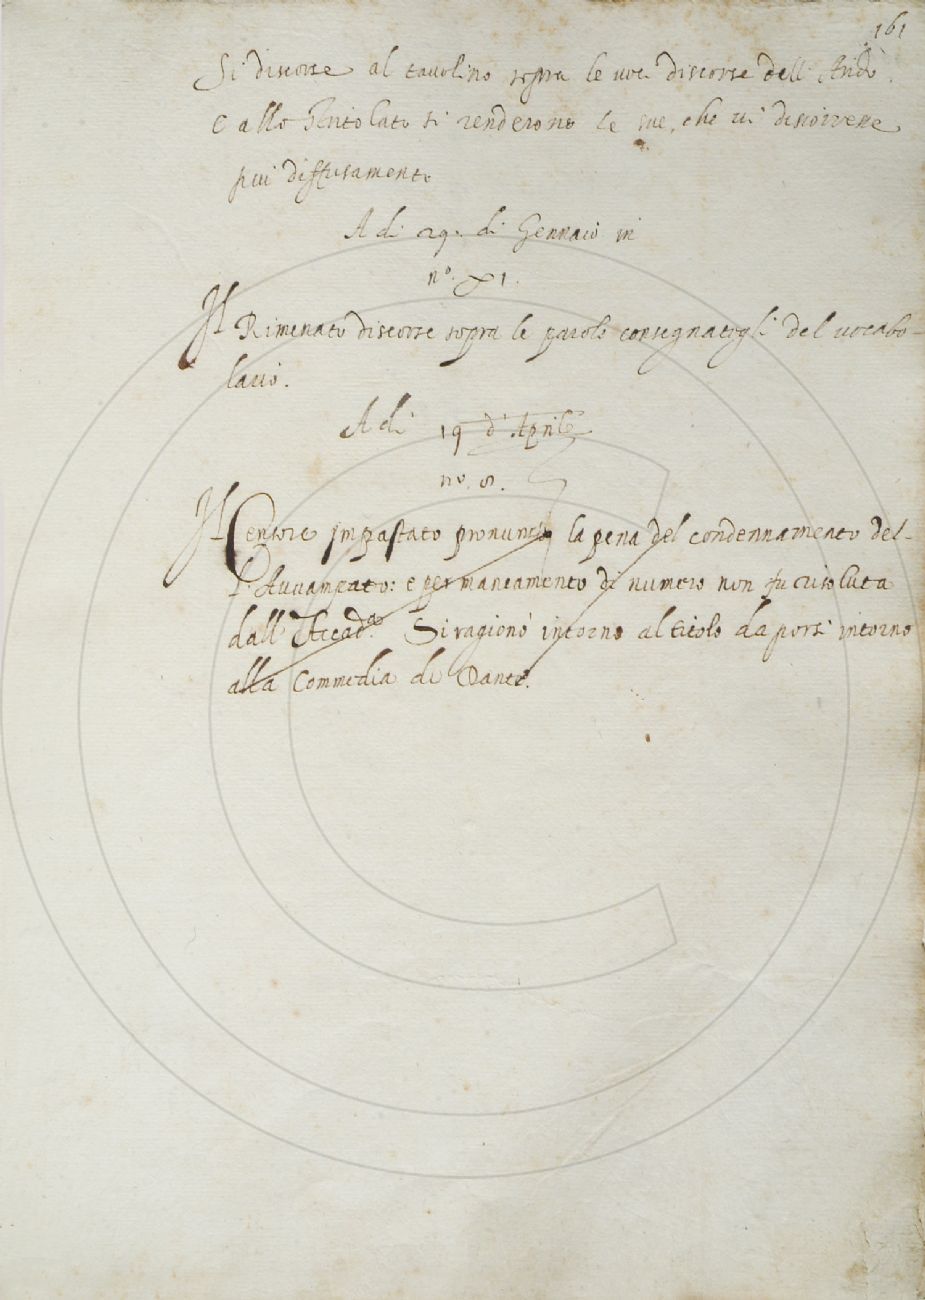 161
Si discorse al tauolino sopra le uoci discorse dell'Arido.
E allo Stritolato si renderono le sue, che ui discorresse
piu diffusamente
A di 29. di Gennaio in
n.º XI.
Il Rimenato discorse sopra le parole consegnatogli del uocabo-
lario.
A di 19 d'Aprile
nº. 8.
Il Censore impastato pronuntiò la pena del condennamento del-
l'Auuampato: e per mancamento di numero non fu risoluta
dall'Accad.ª Si ragionò intorno al titolo da porsi intorno
alla Commedia di Dante.